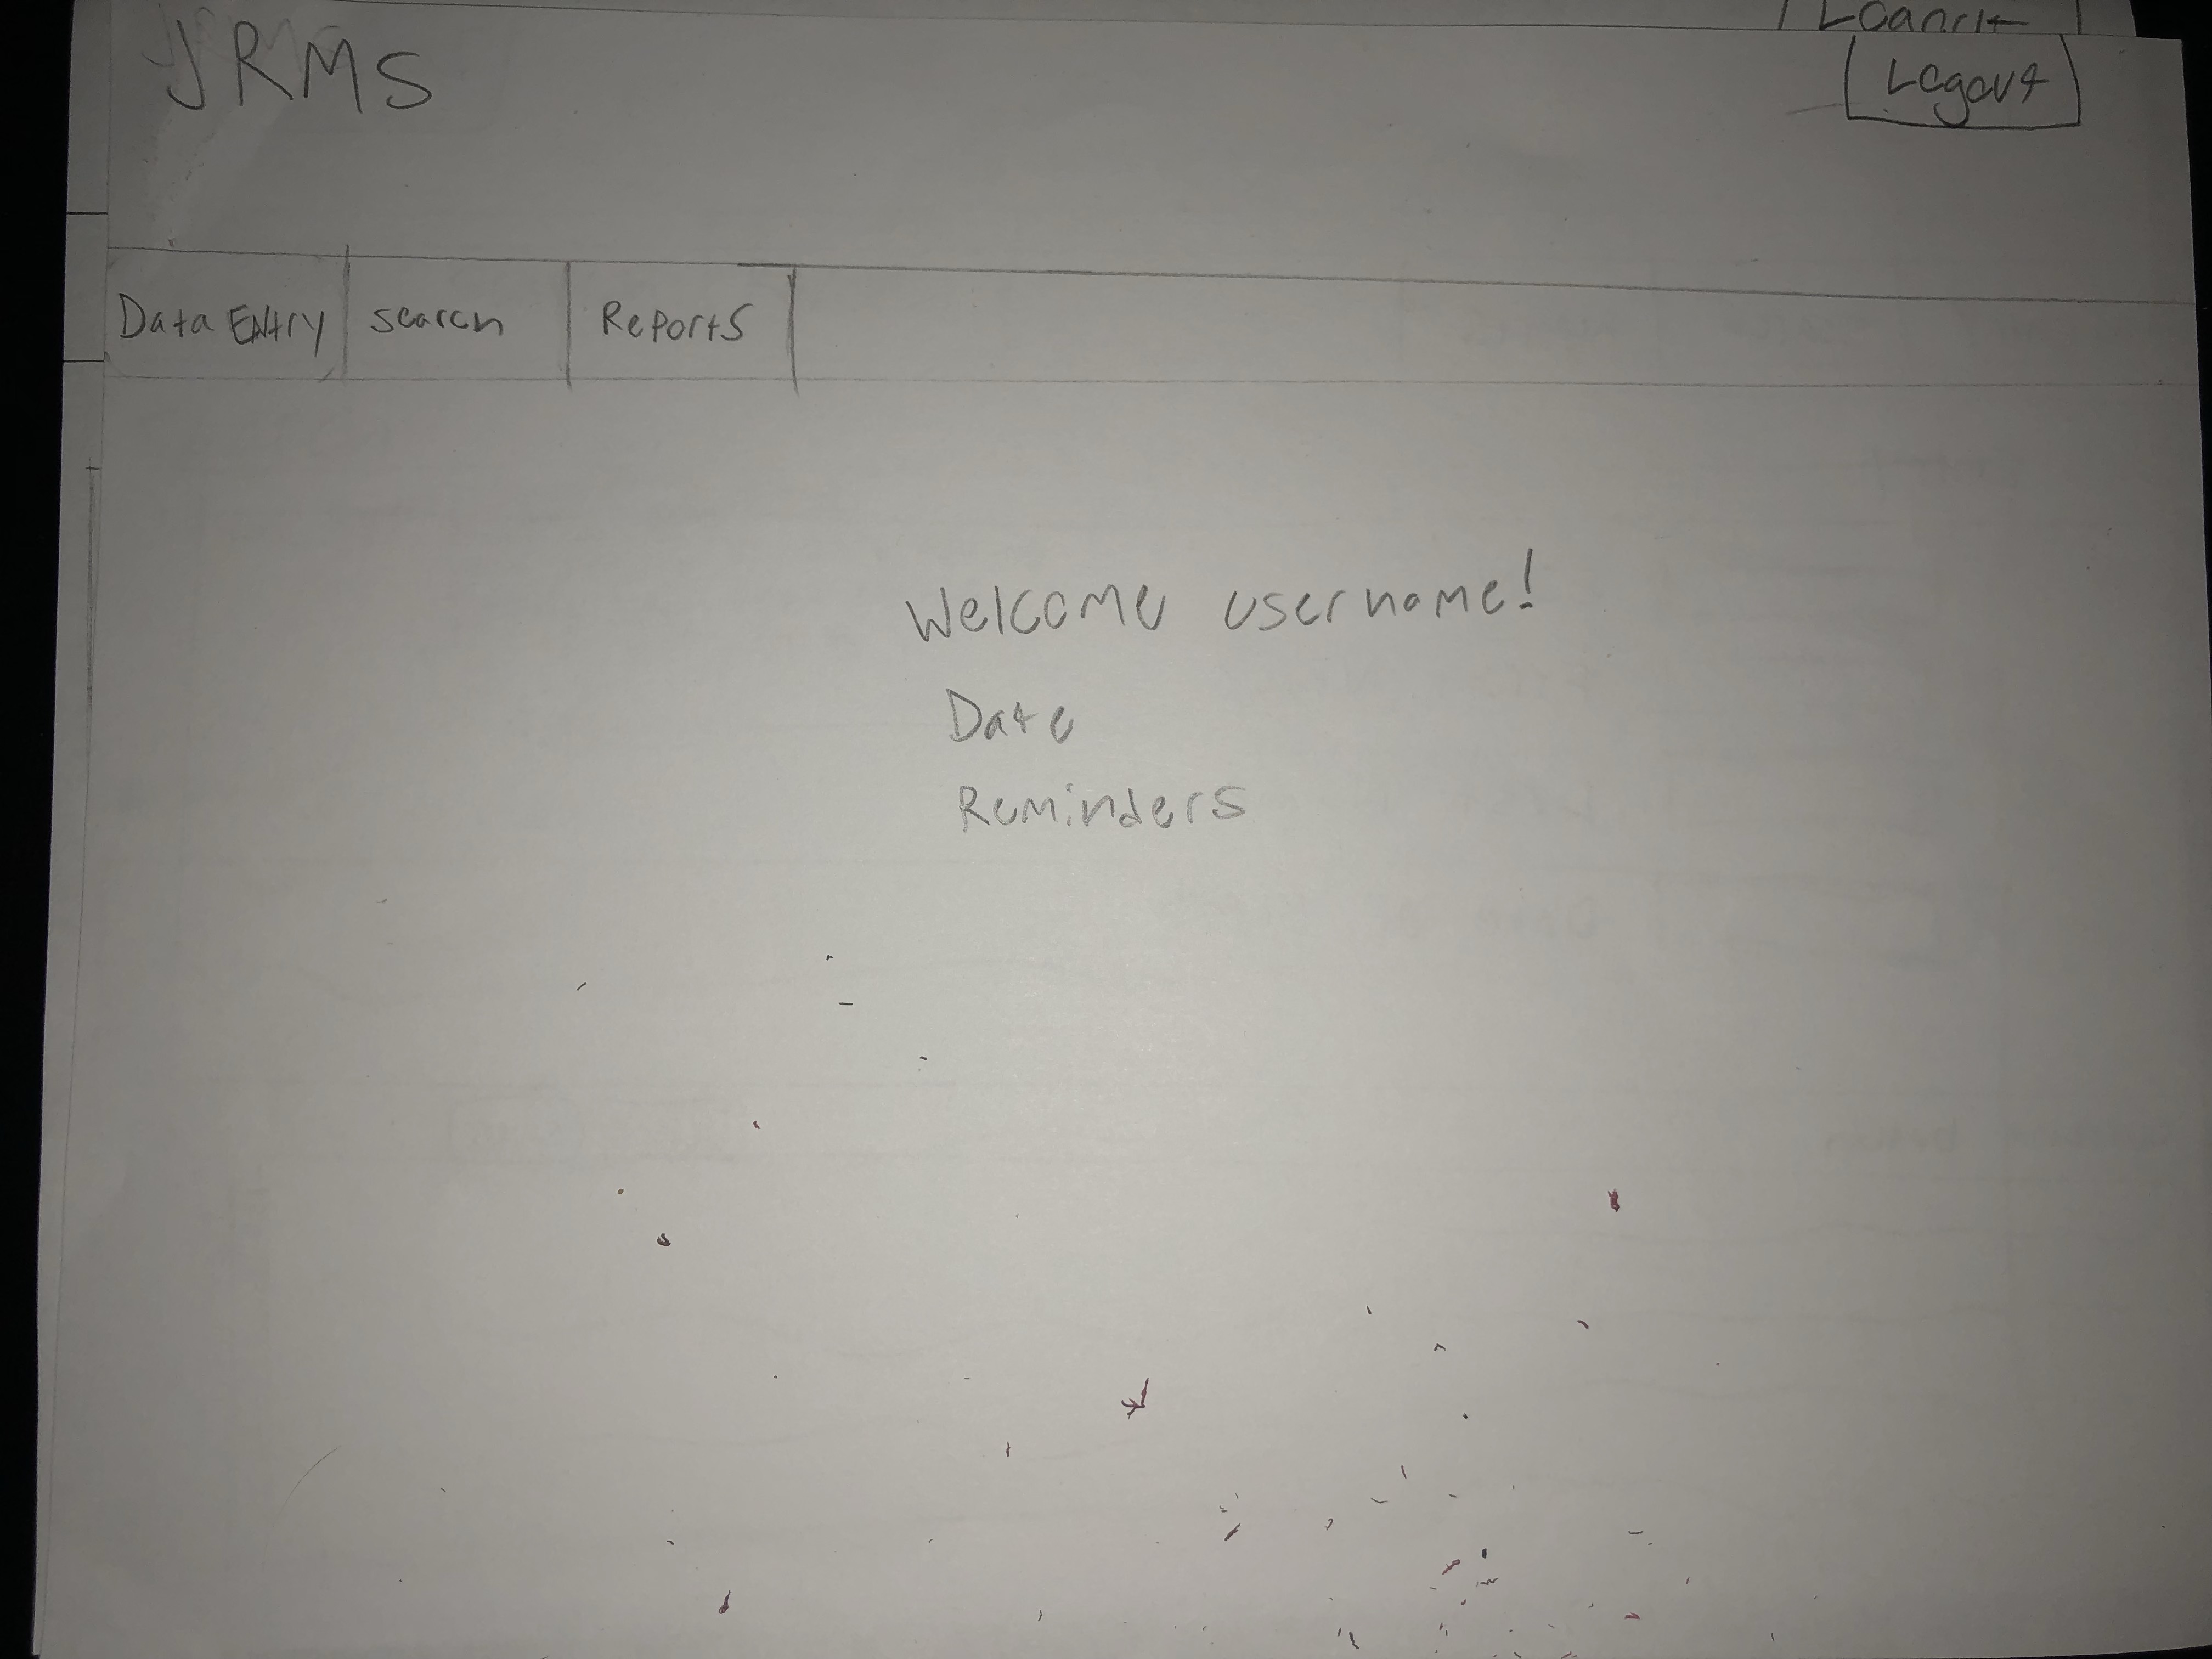 JRMS
Logout
Data Entry
search
Reports
Welcome username!
Date
Reminders